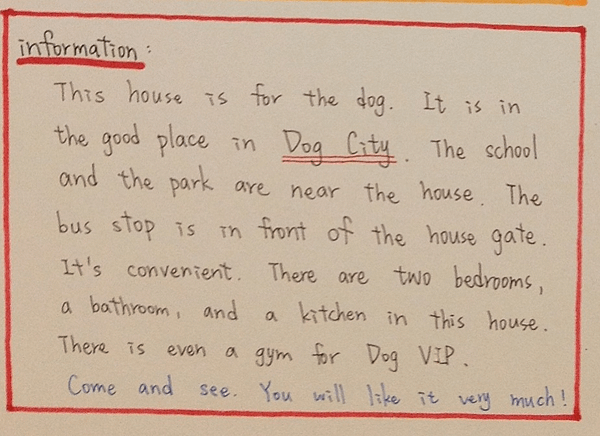 information:
This house is for the dog. It is in
the good place in Dog City. The school
and the park are near the house. The
bus stop is in front of the house gate.
It's convenient. There are two bedrooms,
a bathroom, and a kitchen in this house.
There is even a gym for Dog VIP.
Come and see. You will like it very much!